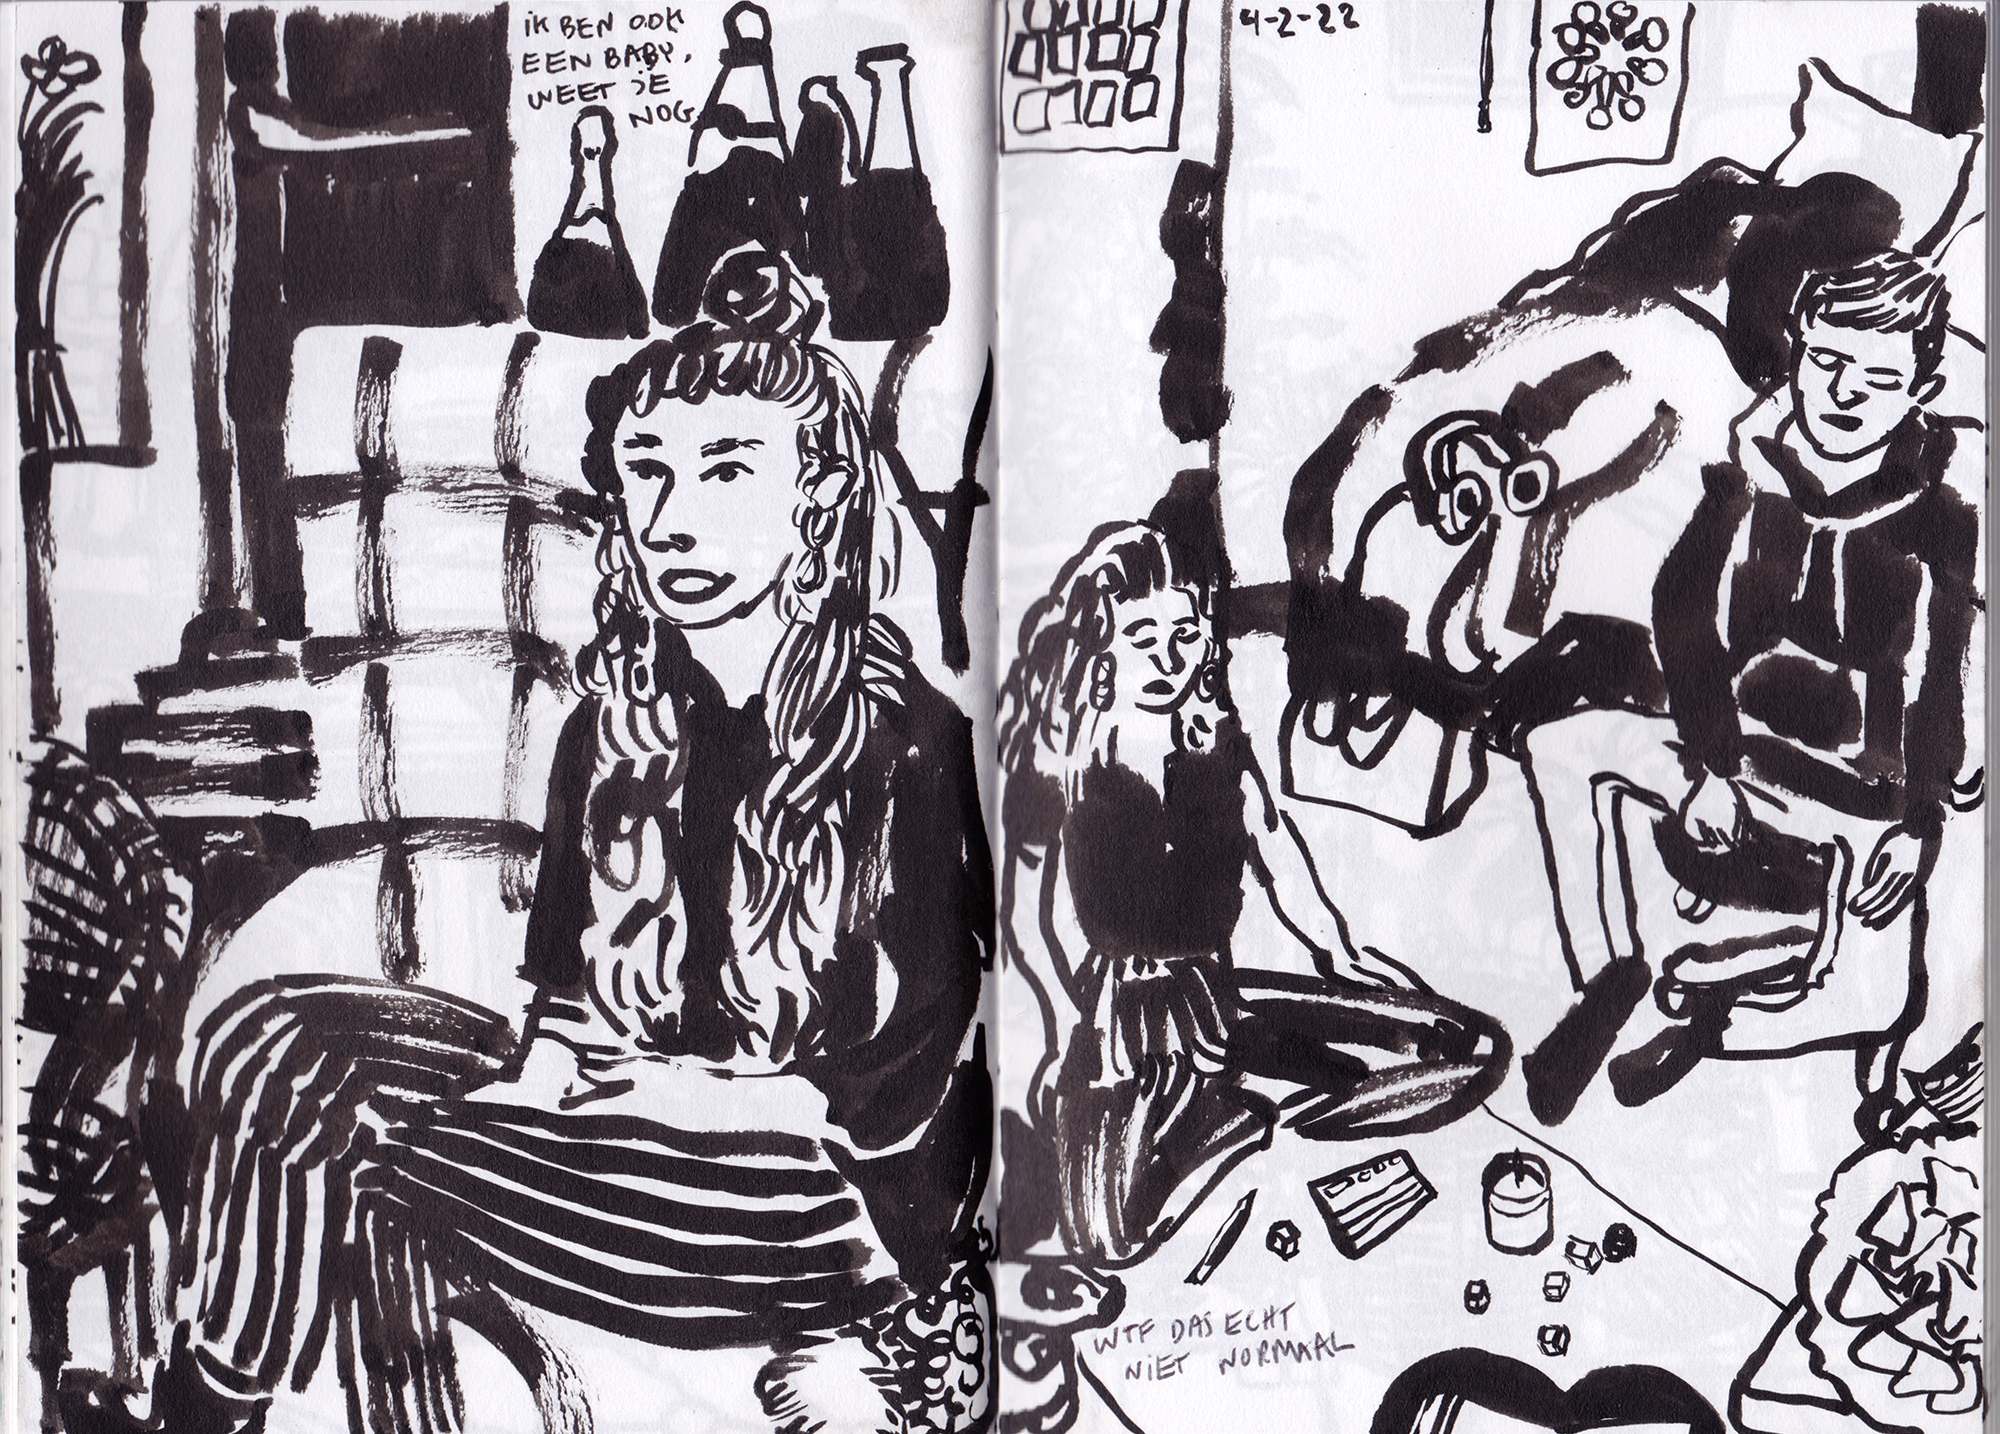 iK BEN OOK
EEN BABY,
WEET JE
NOG
4-2-22
WTF DAS ECHT
NIET NORMAAL